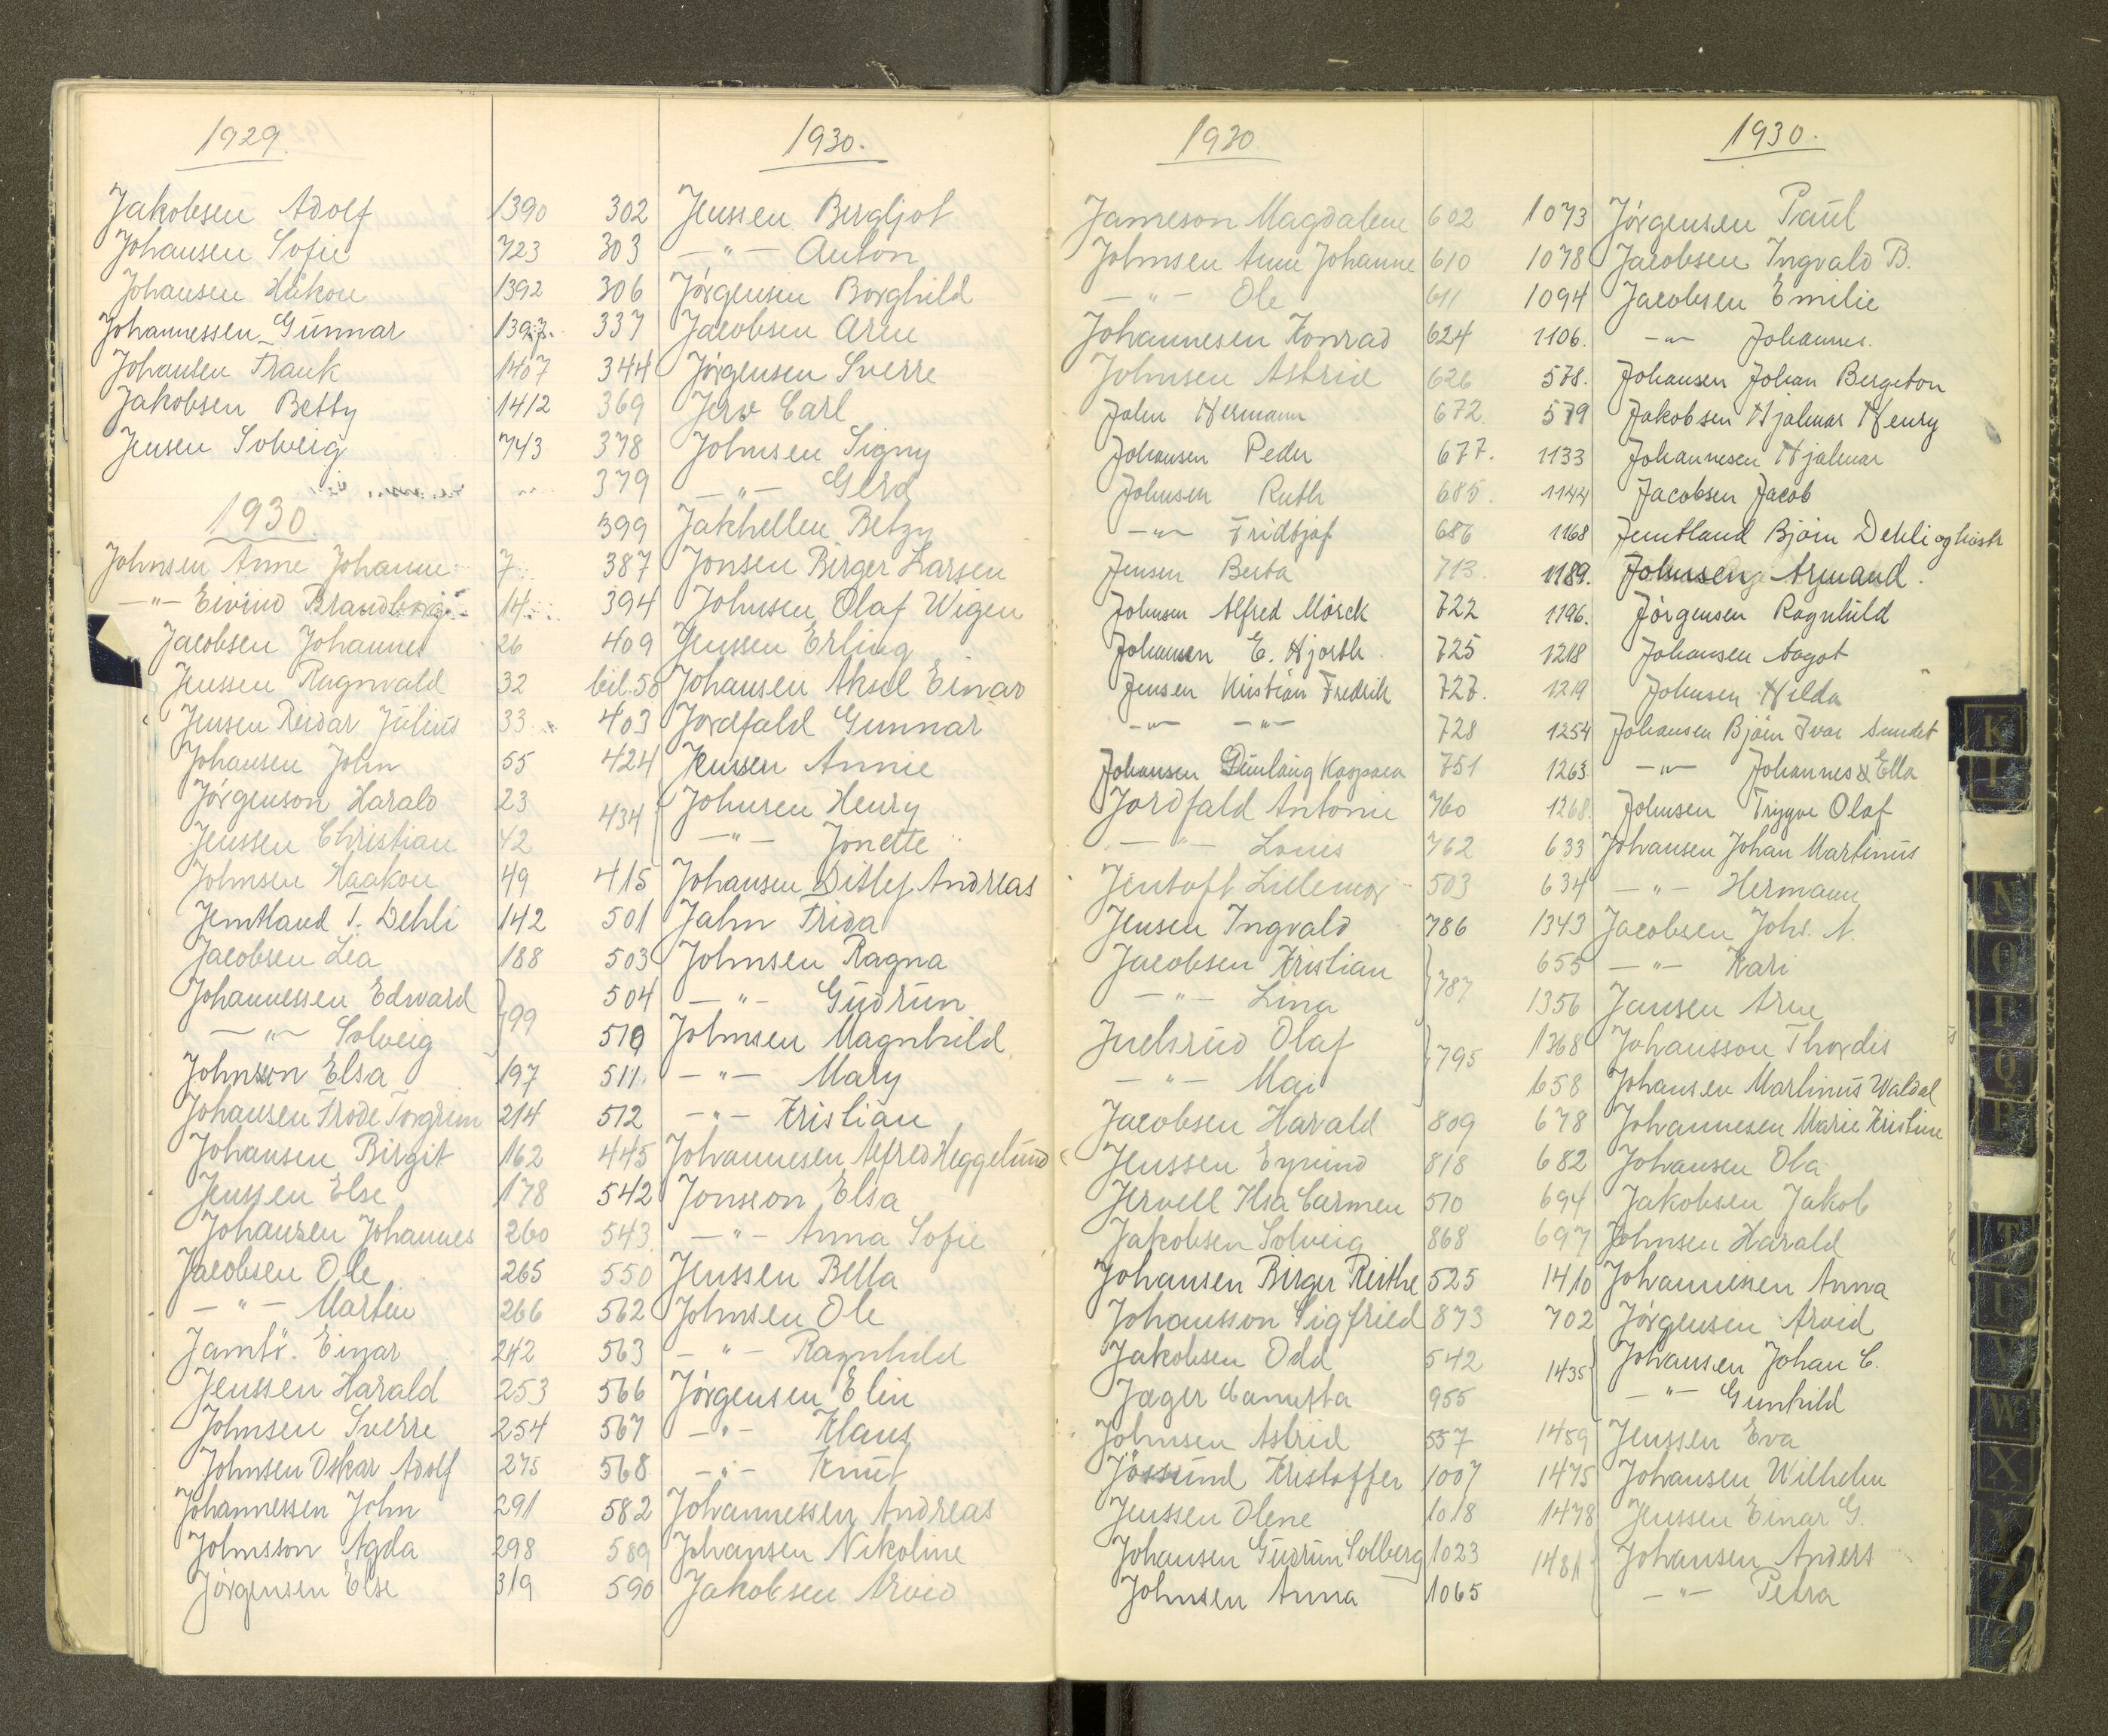 1929.
Jakobsen Adolf 1390
Johansen Sofie 723
Johansen Håkon 1392
Johannessen Gunnar 1397.
Johansen Frank 1407
Jakobsen Betty 1412
Jensen Solveig 743
1930.
Johnsen Anne Johanne 7
—"— Eivind 14
Jacobsen Johannes 26
Jenssen Ragnvald 32
Jensen Reidar Julius 33
Johansen John 55
Jörgenson Harald 23
Jenssen Christian 42
Johnsen Haakon 49
Jemtland T. Dehli 142
Jacobsen Lea 188
Johannessen Edward } 99
—"— Solveig
Johnson Elsa 197
Johansen Frode Torgrim 214
Johansen Birgit 162
Jenssen Else 178
Johansen Johannes 260
Jacobsen Ole 265
—"— Martin 266
Jamtö. Einar 242
Jenssen Harald 253
Johnsen Sverre 254
Johnsen Oskar Adolf 275
Johannessen John 291
Johnsson Agda 298
Jörgensen Else 319
1930.
302 Jenssen Bergljot
303 —"— Anton
306 Jörgensen Borghild
337 Jacobsen Arne
344 Jörgensen Sverre
369 Jerv Carl
378 Johnsen Signy
379 —"— Gerd
399 Jakhellen Betzy
387 Jonsen Birger Larsen
394 Johnsen Olaf Wigen
409 Jenssen Erling
bil.58 Johansen Aksel Einar
403 Jordfald Gunnar
424 Jenssen Annie
434 { Johnsen Henry
—"— Jonette
415 Johansen Ditlef Andreas
501 Jahn Frida
503 Johnsen Ragna
504 —"— Gudrun
510 Johnsen Magnhild
511. —"— Mary
512 —"— Kristian
445 Johannesen Alfred Heggelund
542 Jonsson Elsa
543. —"— Anna Sofie
550 Jenssen Bella
562 Johnsen Ole
563 —"— Ragnhild
566 Jörgensen Elin
567 —"— Klaus
568 —"— Knut
582 Johannessen Andreas
589 Johansen Nikoline
590 Jakobsen Arvid
1930.
Jameson Magdalene 602
Johnsen Anne Johanne 610
—"— Ole 611
Johannesen Konrad 624
Johnsen Astrid 626
Jahn Hermann 672.
Johansen Peder 677.
Johnsen Ruth 685.
—"— Fridtjof 686
Jensen Berta 713.
Johnsen Alfred Mörck 722
Johansen E. Hjorth 725
Jensen Kristian Fredrik 727.
—"— —"— 728
Johansen Gunlaug Kaspara 751
Jordfald Antonie 760
—"— Louis 762
Jentoft Lillemor 503
Jensen Ingvald 786
Jacobsen Kristian } 787
—"— Lina
Juelsrud Olaf } 795
—"— Mai
Jacobsen Harald 809
Jenssen Eyvind 818
Jervell Ilsa Carmen 510
Jakobsen Solveig 868
Johansen Birger Reithe 525
Johansson Sigfried 873
Jakobsen Odd 542
Jæger Camitta 955
Johnsen Astrid 557
Jössund Kristoffer 1007
Jenssen Olene 1018
Johansen Gudrun Solberg 1023
Johnsen Anna 1065
1930.
1073 Jörgensen Paul
1078 Jacobsen Ingvald B.
1094 Jacobsen Emilie
1106. —"— Johannes.
578. Johansen Johan Bergeton
579 Jakobsen Hjalmar Henry
1133 Johannesen Hjalmar
1144 Jacobsen Jacob
1168 Jemtland Bjørn Dehli og hustr
1189. Johnsen Armand.
1196. Jörgensen Ragnhild
1218 Johansen Aagot
1219 Johnsen Hilda
1254 Johansen Bjørn Ivar Sundet
1263 —"— Johannes & Ella
1268. Johnsen Trygve Olaf
633 Johansen Johan Martinus
634 —"— Hermann
1343 Jacobsen Johs. N.
655 —"— Kari
1356 Jansen Arne
1368 Johansson Thordis
658 Johansen Martinus Waldal
678 Johannesen Marie Kristine
682 Johansen Ola
694 Jakobsen Jakob
697 Johnsen Harald
1410 Johannessen Anna
702 Jörgensen Arvid
1435 { Johansen Johan C.
—"— Gunhild
1459 Jenssen Eva
1475 Johansen Wilhelm
1478 Jenssen Einar G.
1481 { Johansen Anders
—"— Petra
K
L
N
O
P
Q
R
T
U
V
W
X
Y
Z